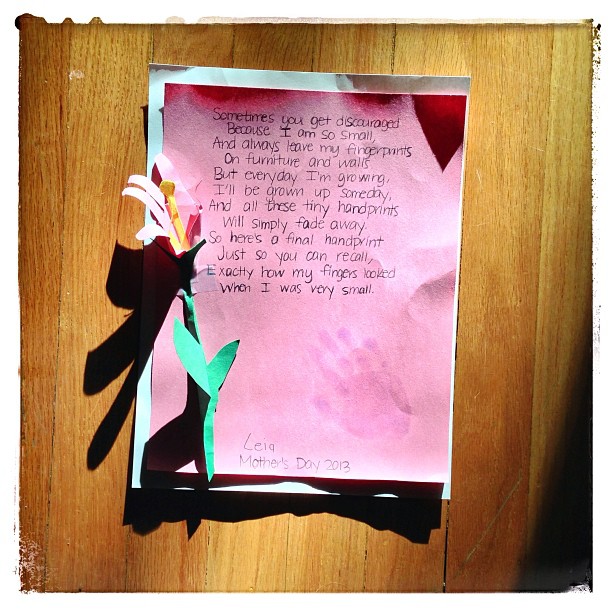 Sometimes you get discouraged
Because I am so small,
And always leave my fingerprints
On furniture and walls
But everyday I'm growing,
I'll be grown up someday,
And all these tiny handprints
Will simply fade away.
So here's a final handprint
Just so you can recall,
Exactly how my fingers looked
When I was very small.
Leia
Mother's Day 2013